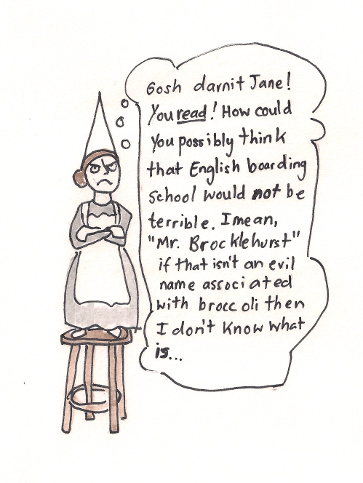 Gosh darnit Jane!
You read! How could
you possibly think
that English boarding
school would not be
terrible. I mean,
"Mr. Brocklehurst"
if that isn't an evil
name associated
with broccoli then
I don't know what
is...